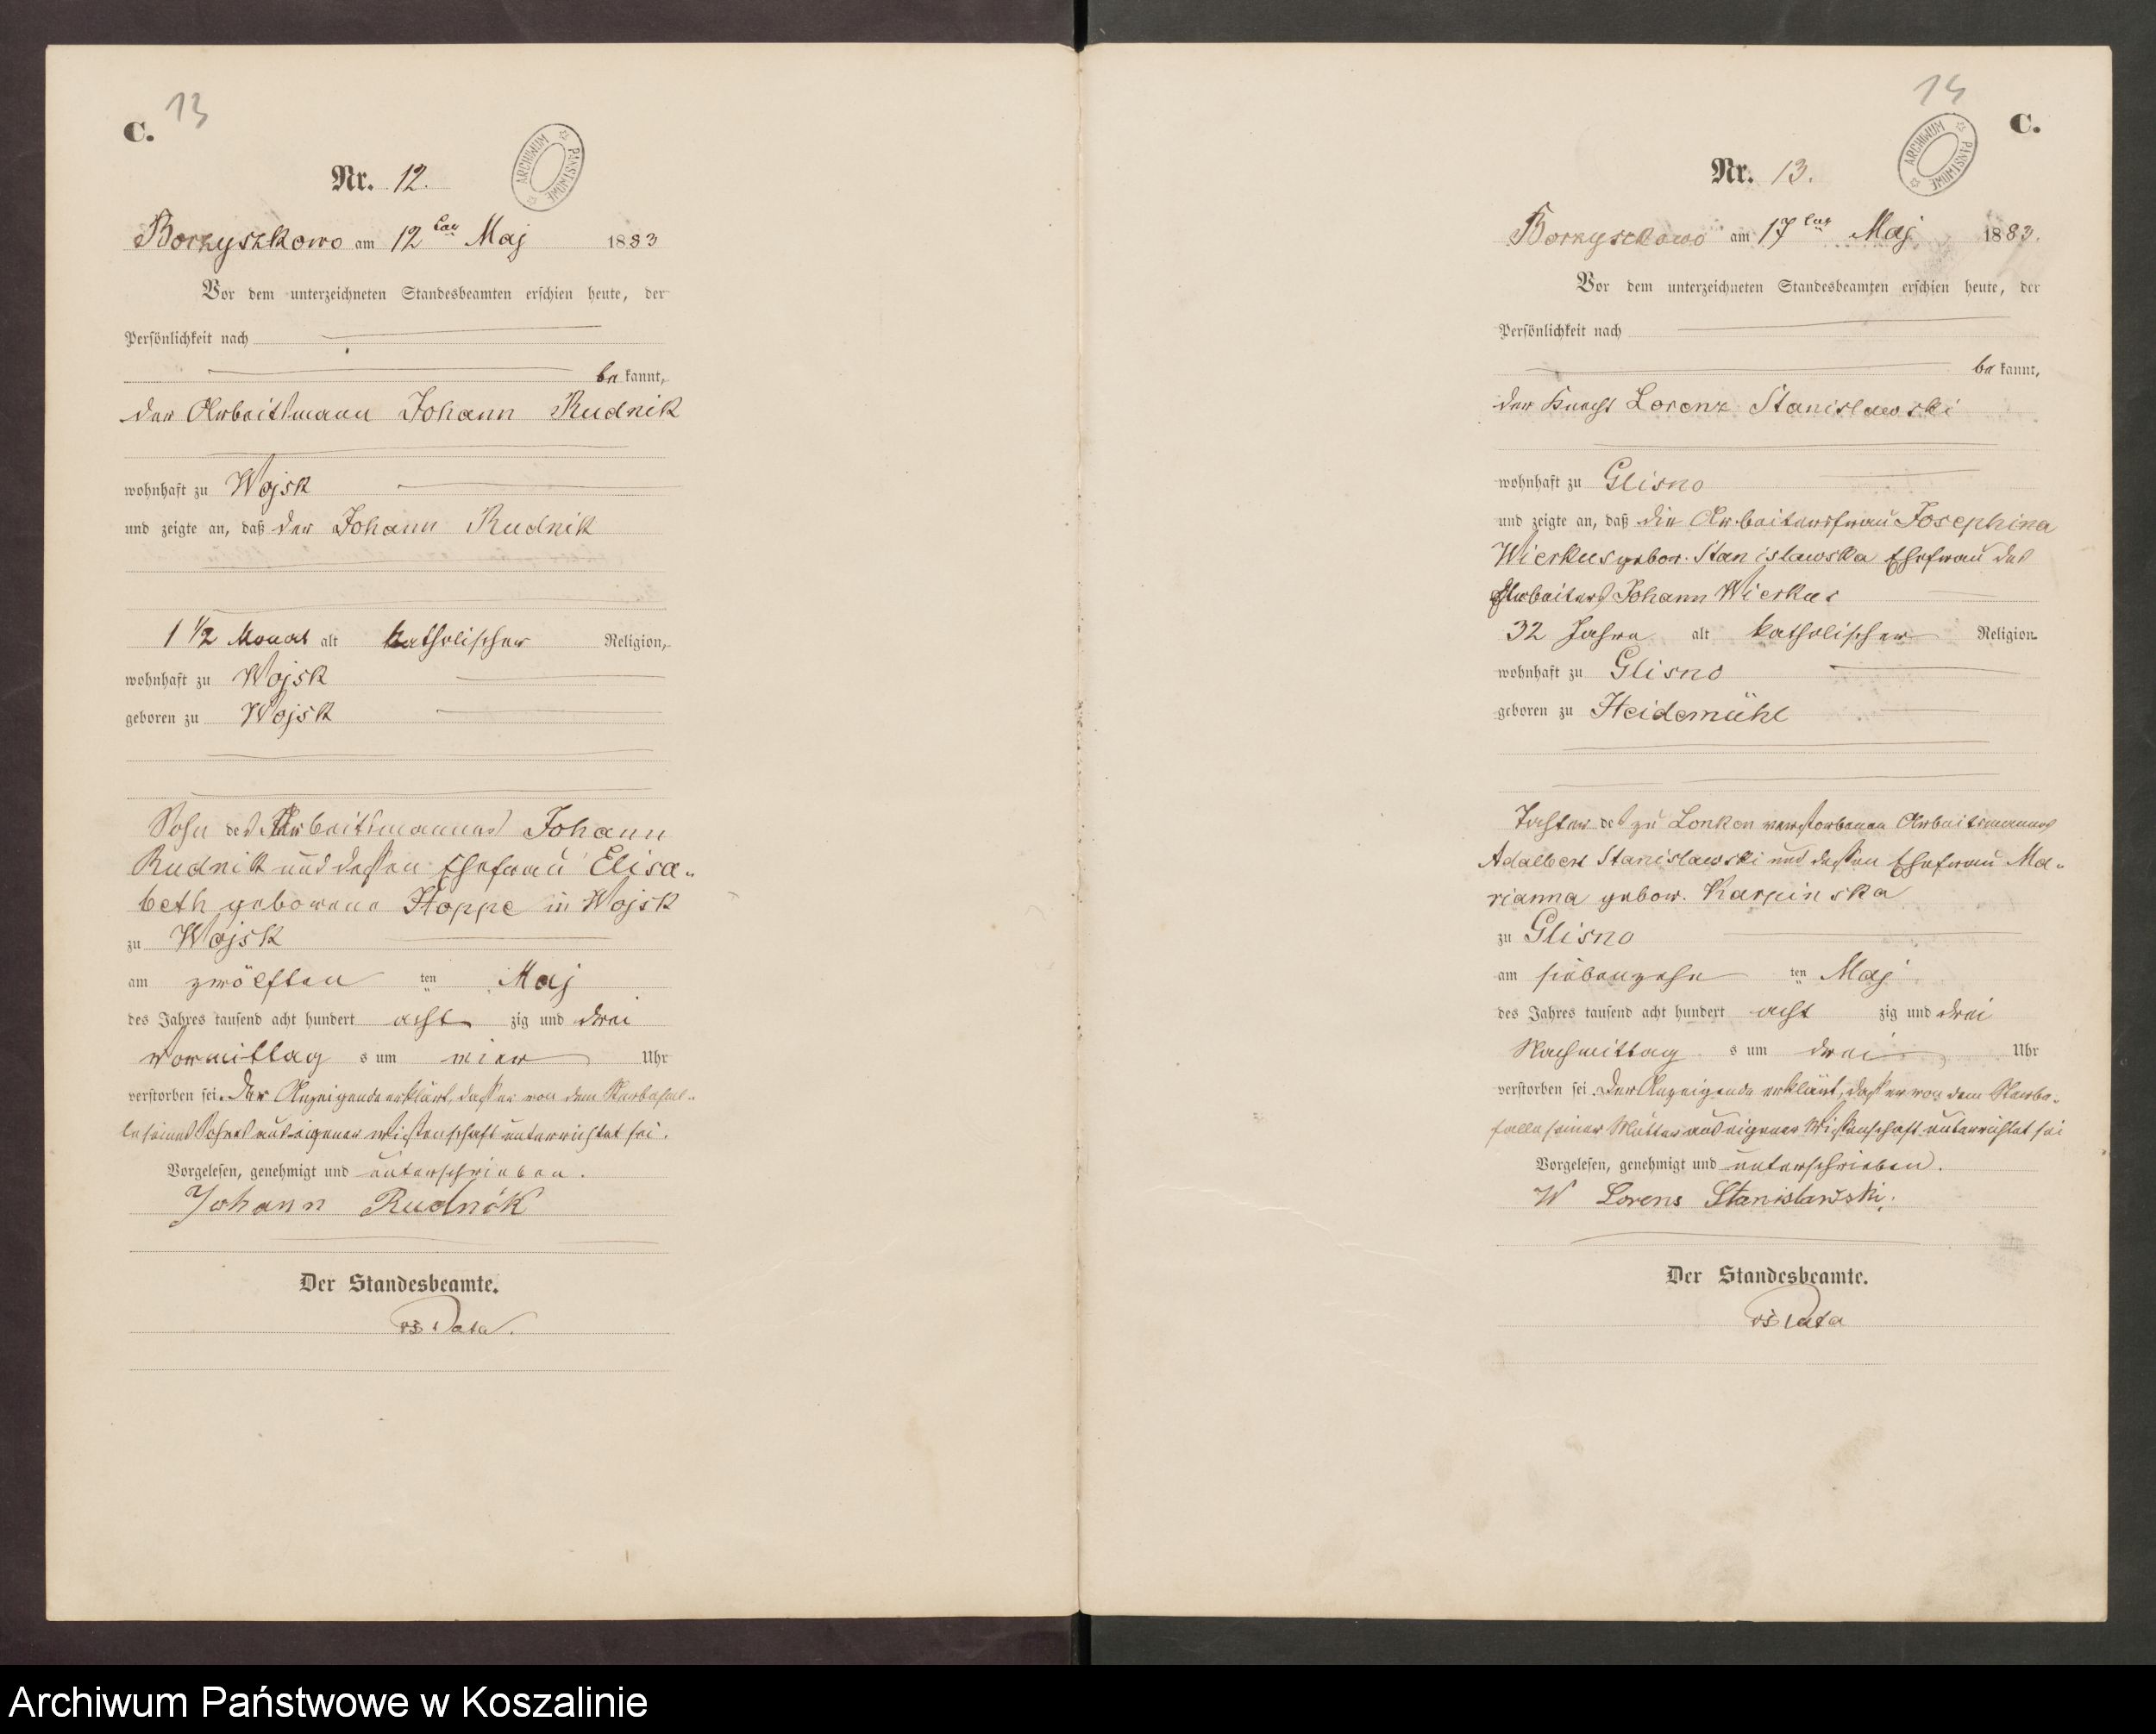 13
C.
ARCHIWUM PAŃSTWOWE
Nr. 12.
Borzyszkowo am 12ten Maj 1883
Vor dem unterzeichneten Standesbeamten erschien heute, der
Persönlichkeit nach
be kannt,
der Arbeitsmann Johann Rudnik
wohnhaft zu Wojsk
und zeigte an, daß der Johann Rudnik
1 1/2 Monat alt katholischer Religion,
wohnhaft zu Wojsk
geboren zu Wojsk
Sohn des Arbeitsmannes Johann
Rudnik und dessen Ehefrau Elisa-
beth geborene Hoppe in Wojsk
zu Wojsk
am zwölften ten Maj
des Jahres tausend acht hundert acht zig und drei
vormittag s um vier Uhr
verstorben sei. Der Anzeigende erklärt, dass er von dem Sterbefal-
le seines Sohnes aus eigener Wissenschaft unterrichtet sei.
Vorgelesen, genehmigt und unterschrieben.
Johann Rudnik
Der Standesbeamte.
14
C.
ARCHIWUM PAŃSTWOWE
Nr. 13.
Borzyszkowo am 17ten Maj 1883.
Vor dem unterzeichneten Standesbeamten erschien heute, der
Persönlichkeit nach
be kannt,
der Knecht Lorenz Stanislawski
wohnhaft zu Glisno
und zeigte an, daß die Arbeitersfrau Josephina
Wierkus gebor. Stanislawska Ehefrau des
Arbeiters Johann Wierkus
32 Jahre alt katholischer Religion
wohnhaft zu Glisno
geboren zu Heidemühl
Tochter des zu Lonken verstorbenen Arbeitsmannes
Adalbert Stanislawski und dessen Ehefrau Ma-
rianna gebor. Karpinska
zu Glisno
am siebenzehn ten Maj
des Jahres tausend acht hundert acht zig und drei
Nachmittag s um drei Uhr
verstorben sei. Der Anzeigende erklärt, dass er von dem Sterbe-
falle seiner Mutter aus eigener Wissenschaft unterrichtet sei
Vorgelesen, genehmigt und unterschrieben.
W Lorens Stanislawski.
Der Standesbeamte.
Archiwum Państwowe w Koszalinie